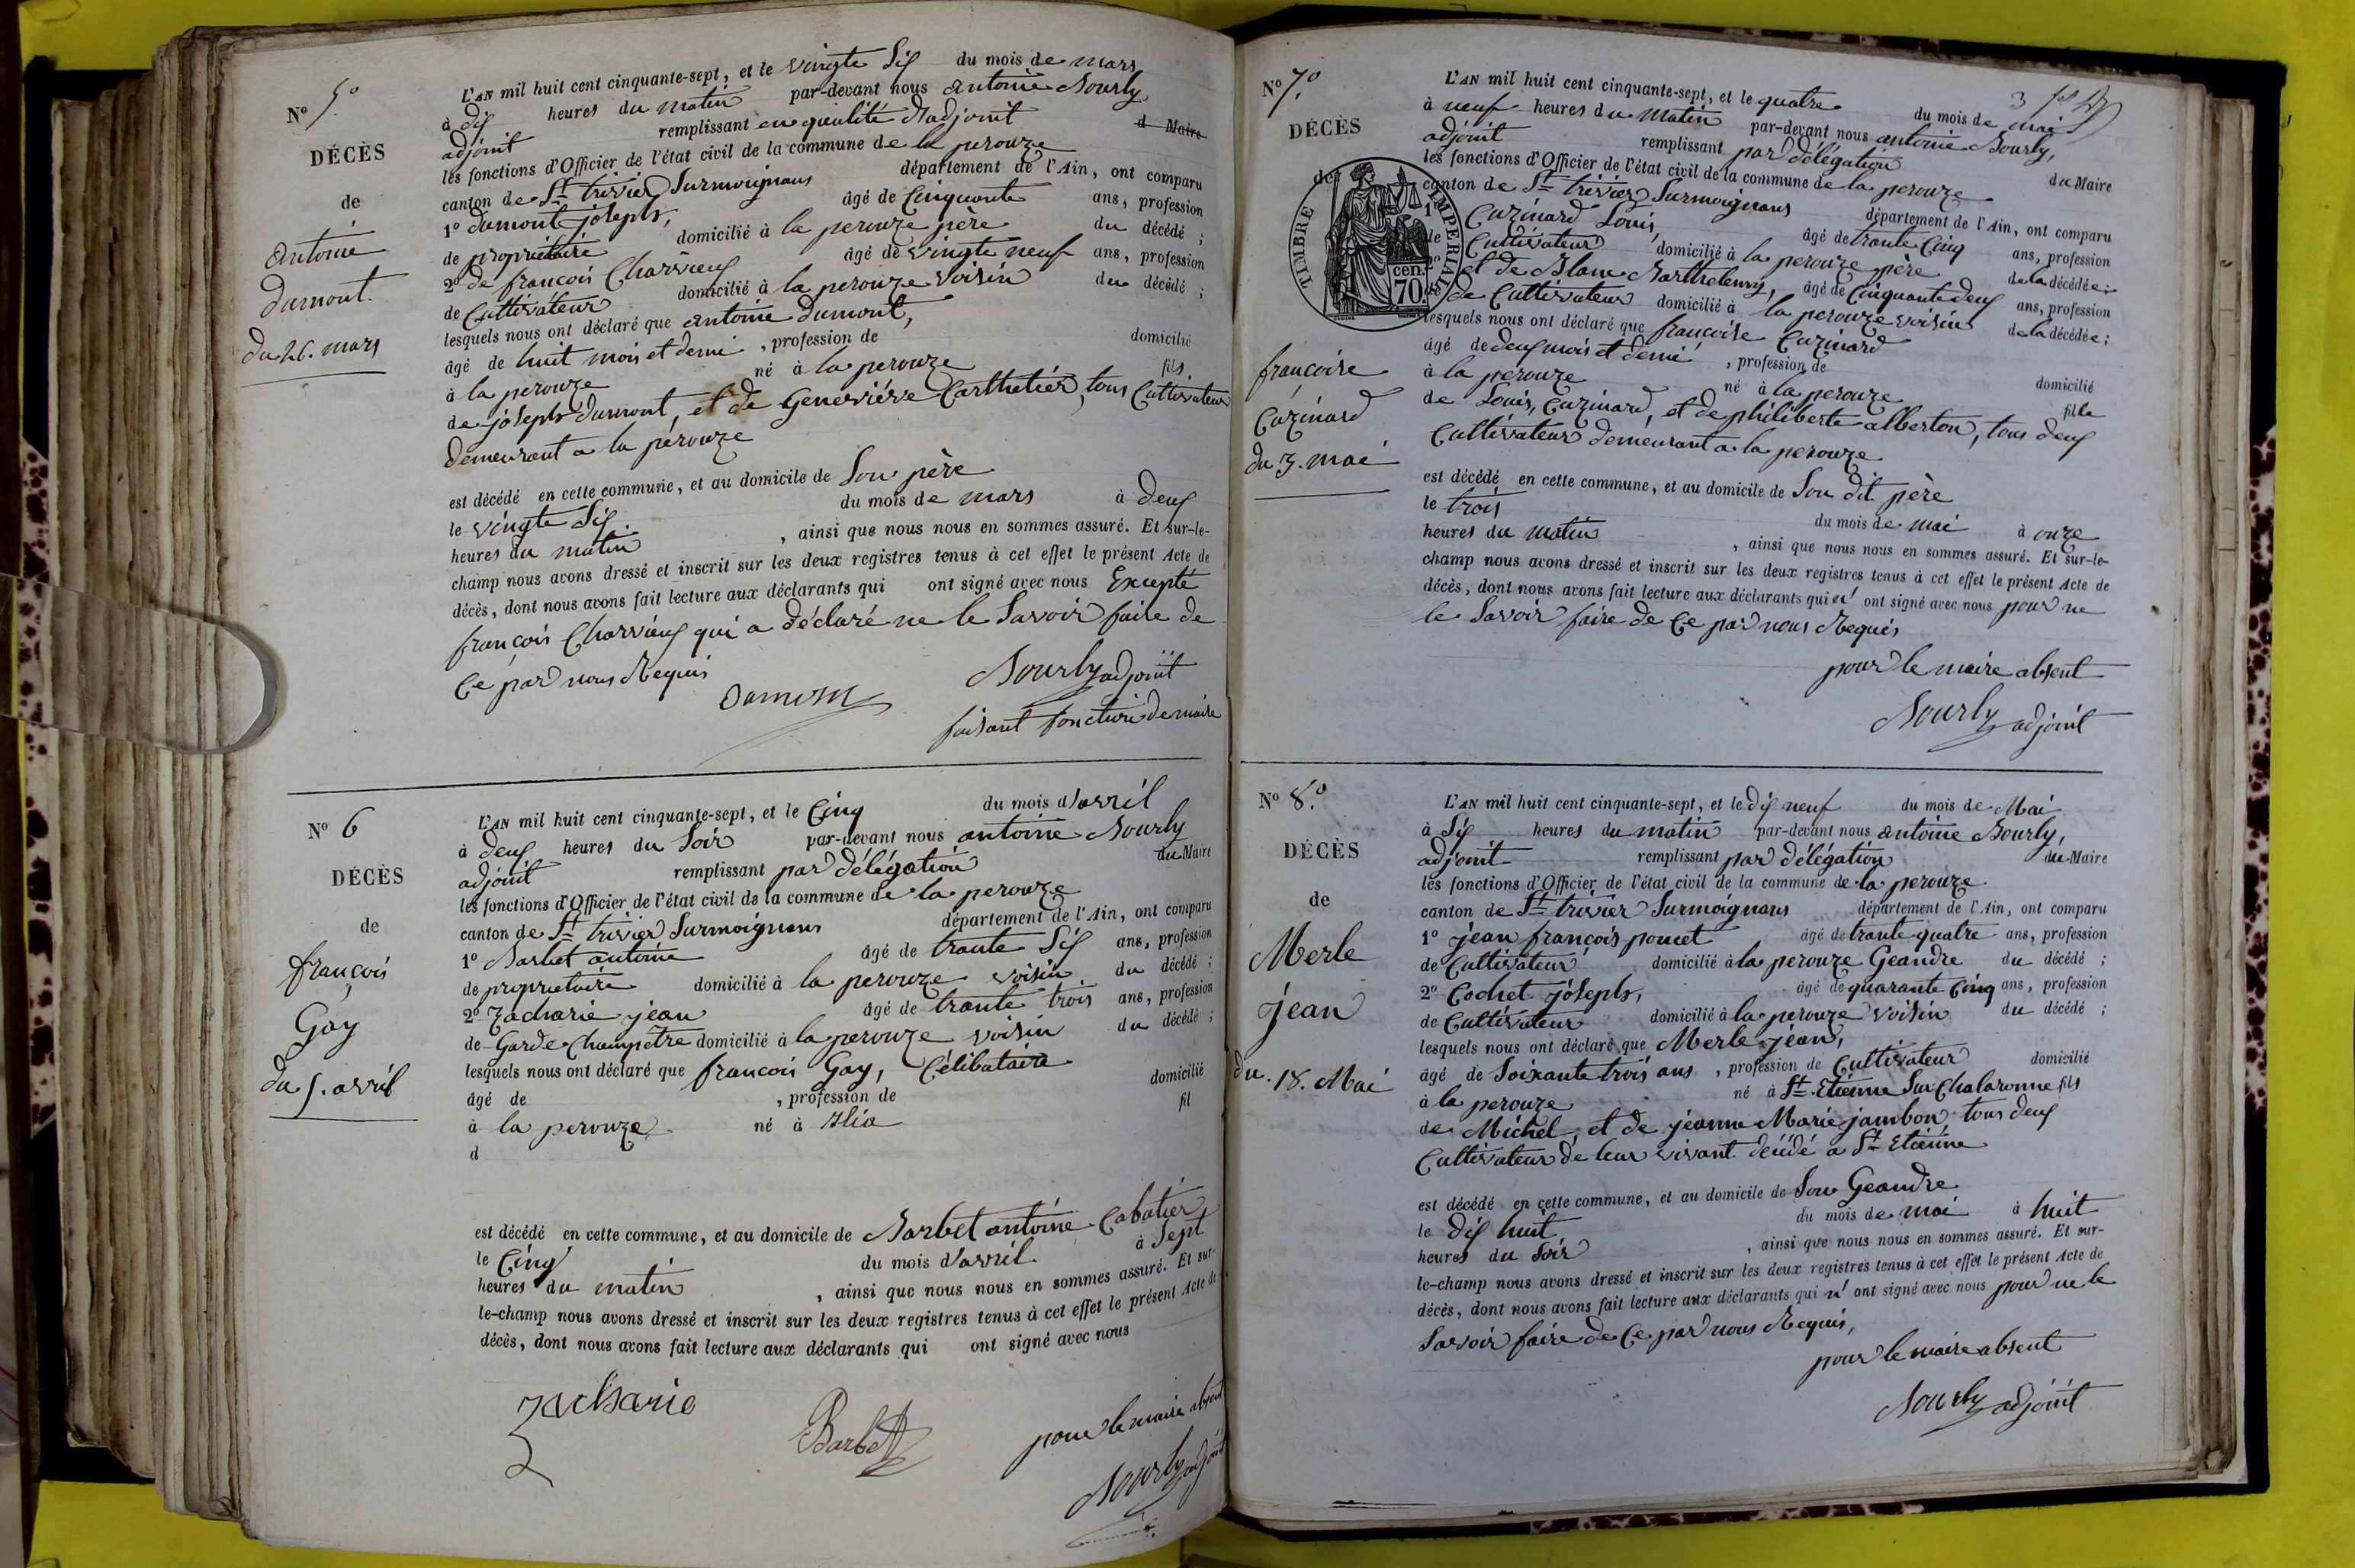 No 5°
DÉCÈS
de
antoine
dumont.
du 26. mars
L'AN mil huit cent cinquante-sept, et le vingte Six du mois de mars
à dix heures du matin par-devant nous antoine Bourly,
adjoint remplissant en quialité d'adjoint d Maire
les fonctions d'Officier de l'état civil de la commune de la perouze
canton de St trivier Surmoignans département de l'Ain, ont comparu
1° dumont joseph, âgé de Cinquante ans, profession
de propriétaire domicilié à la perouze père du décédé ;
2° de françois Charvieux âgé de vingte neuf ans, profession
de Cultivateur domicilié à la perouze voisin du décédé ;
lesquels nous ont déclaré que antoine dumont,
âgé de huit mois et demi , profession de domicilié
à la perouze né à la perouze fils
de joseph dumont, et de Geneviéve Carthelier, tous Cultivateur
demeurant a la pérouze
est décédé en cette commune, et au domicile de Son père
le vingte Six. du mois de mars à deux
heures du matin , ainsi que nous nous en sommes assuré. Et sur-le-
champ nous avons dressé et inscrit sur les deux registres tenus à cet effet le présent Acte de
décès, dont nous avons fait lecture aux déclarants qui ont signé avec nous Excepté
françois Charvieux qui a déclaré ne le Savoir faire de
Ce par nous Requis
Dumont Bourly adjoint
faisant fonction de maire
No 6
DÉCÈS
de
françois
Gay
du 5. avril
L'AN mil huit cent cinquante-sept, et le Cinq du mois d'avril
à deux heures du Soir par-devant nous antoine Bourly
adjoint remplissant par délégation du Maire
les fonctions d'Officier de l'état civil de la commune de la perouze
canton de St trivier Surmoignans département de l'Ain, ont comparu
1° Barbet antoine âgé de trante Six ans, profession
de proprietaire domicilié à la perouze voisin du décédé ;
2° Zacharie jean âgé de trante trois ans, profession
de Garde Champêtre domicilié à la perouze voisin du décédé ;
lesquels nous ont déclaré que francois Gay, Célibataire
âgé de , profession de domicilié
à la perouze né à Blia fil
d
est décédé en cette commune, et au domicile de Barbet antoine Cabatier
le Cinq du mois d'avril à Sept
heures du matin , ainsi que nous nous en sommes assuré. Et sur-
le-champ nous avons dressé et inscrit sur les deux registres tenus à cet effet le présent Acte de
décès, dont nous avons fait lecture aux déclarants qui ont signé avec nous
zacharie Barbet pour le maire absent
Bourly adjoint
No 7.°
DÉCÈS
de
TIMBRE IMPERIAL
cen.
70.
françoise
Cuzinard
du 3. mai
L'AN mil huit cent cinquante-sept, et le quatre du mois de mai
à neuf heures du matin par-devant nous antoine Bourly,
adjoint remplissant par délégation du Maire
les fonctions d'Officier de l'état civil de la commune de la perouze
canton de St trivier Surmoignans département de l'Ain, ont comparu
1° Cuzinard Louis, âgé de trante Cinq ans, profession
de Cultivateur domicilié à la perouze père de la décédée ;
2° et de Blanc Barthelemy, âgé de Cinquante deux ans, profession
de Cultivateur domicilié à la perouze voisin de la décédée ;
lesquels nous ont déclaré que francoise Cuzinard
âgé de deux mois et demi , profession de domicilié
à la perouze né à la perouze fille
de Louis, Cuzinard, et de philiberte alberton, tous deux
Cultivateur demeurant a la perouze
est décédé en cette commune, et au domicile de Son dit père
le trois du mois de mai à onze
heures du matin , ainsi que nous nous en sommes assuré. Et sur-le-
champ nous avons dressé et inscrit sur les deux registres tenus à cet effet le présent Acte de
décès, dont nous avons fait lecture aux déclarants qui n' ont signé avec nous pour ne
le Savoir faire de Ce par nous Requis
pour le maire absent
Bourly adjoint
No 8.°
DÉCÈS
de
Merle
jean
du. 18. Mai
L'AN mil huit cent cinquante-sept, et le dix neuf du mois de Mai
à Six heures du matin par-devant nous antoine Bourly,
adjoint remplissant par délégation du Maire
les fonctions d'Officier de l'état civil de la commune de la perouze
canton de St trivier Surmoignans département de l'Ain, ont comparu
1° jean françois poncet âgé de trante quatre ans, profession
de Cultivateur domicilié à la perouze Geandre du décédé ;
2° Cochet joseph, âgé de quarante Cinq ans, profession
de Cultivateur domicilié à la perouze voisin du décédé ;
lesquels nous ont déclaré que Merle jean,
âgé de Soixante trois ans , profession de Cultivateur domicilié
à la perouze né à St Etienne Sur Chalaronne fils
de Michel, et de jeanne Marie jambon, tous deux
Cultivateur de leur vivant décédé a St Etienne
est décédé en cette commune, et au domicile de Son Geandre
le dix huit du mois de mai à huit
heures du Soir , ainsi que nous nous en sommes assuré. Et sur-
le-champ nous avons dressé et inscrit sur les deux registres tenus à cet effet le présent Acte de
décès, dont nous avons fait lecture aux déclarants qui n' ont signé avec nous pour ne le
Savoir faire de Ce par nous Requis,
pour le maire absent
Bourly adjoint